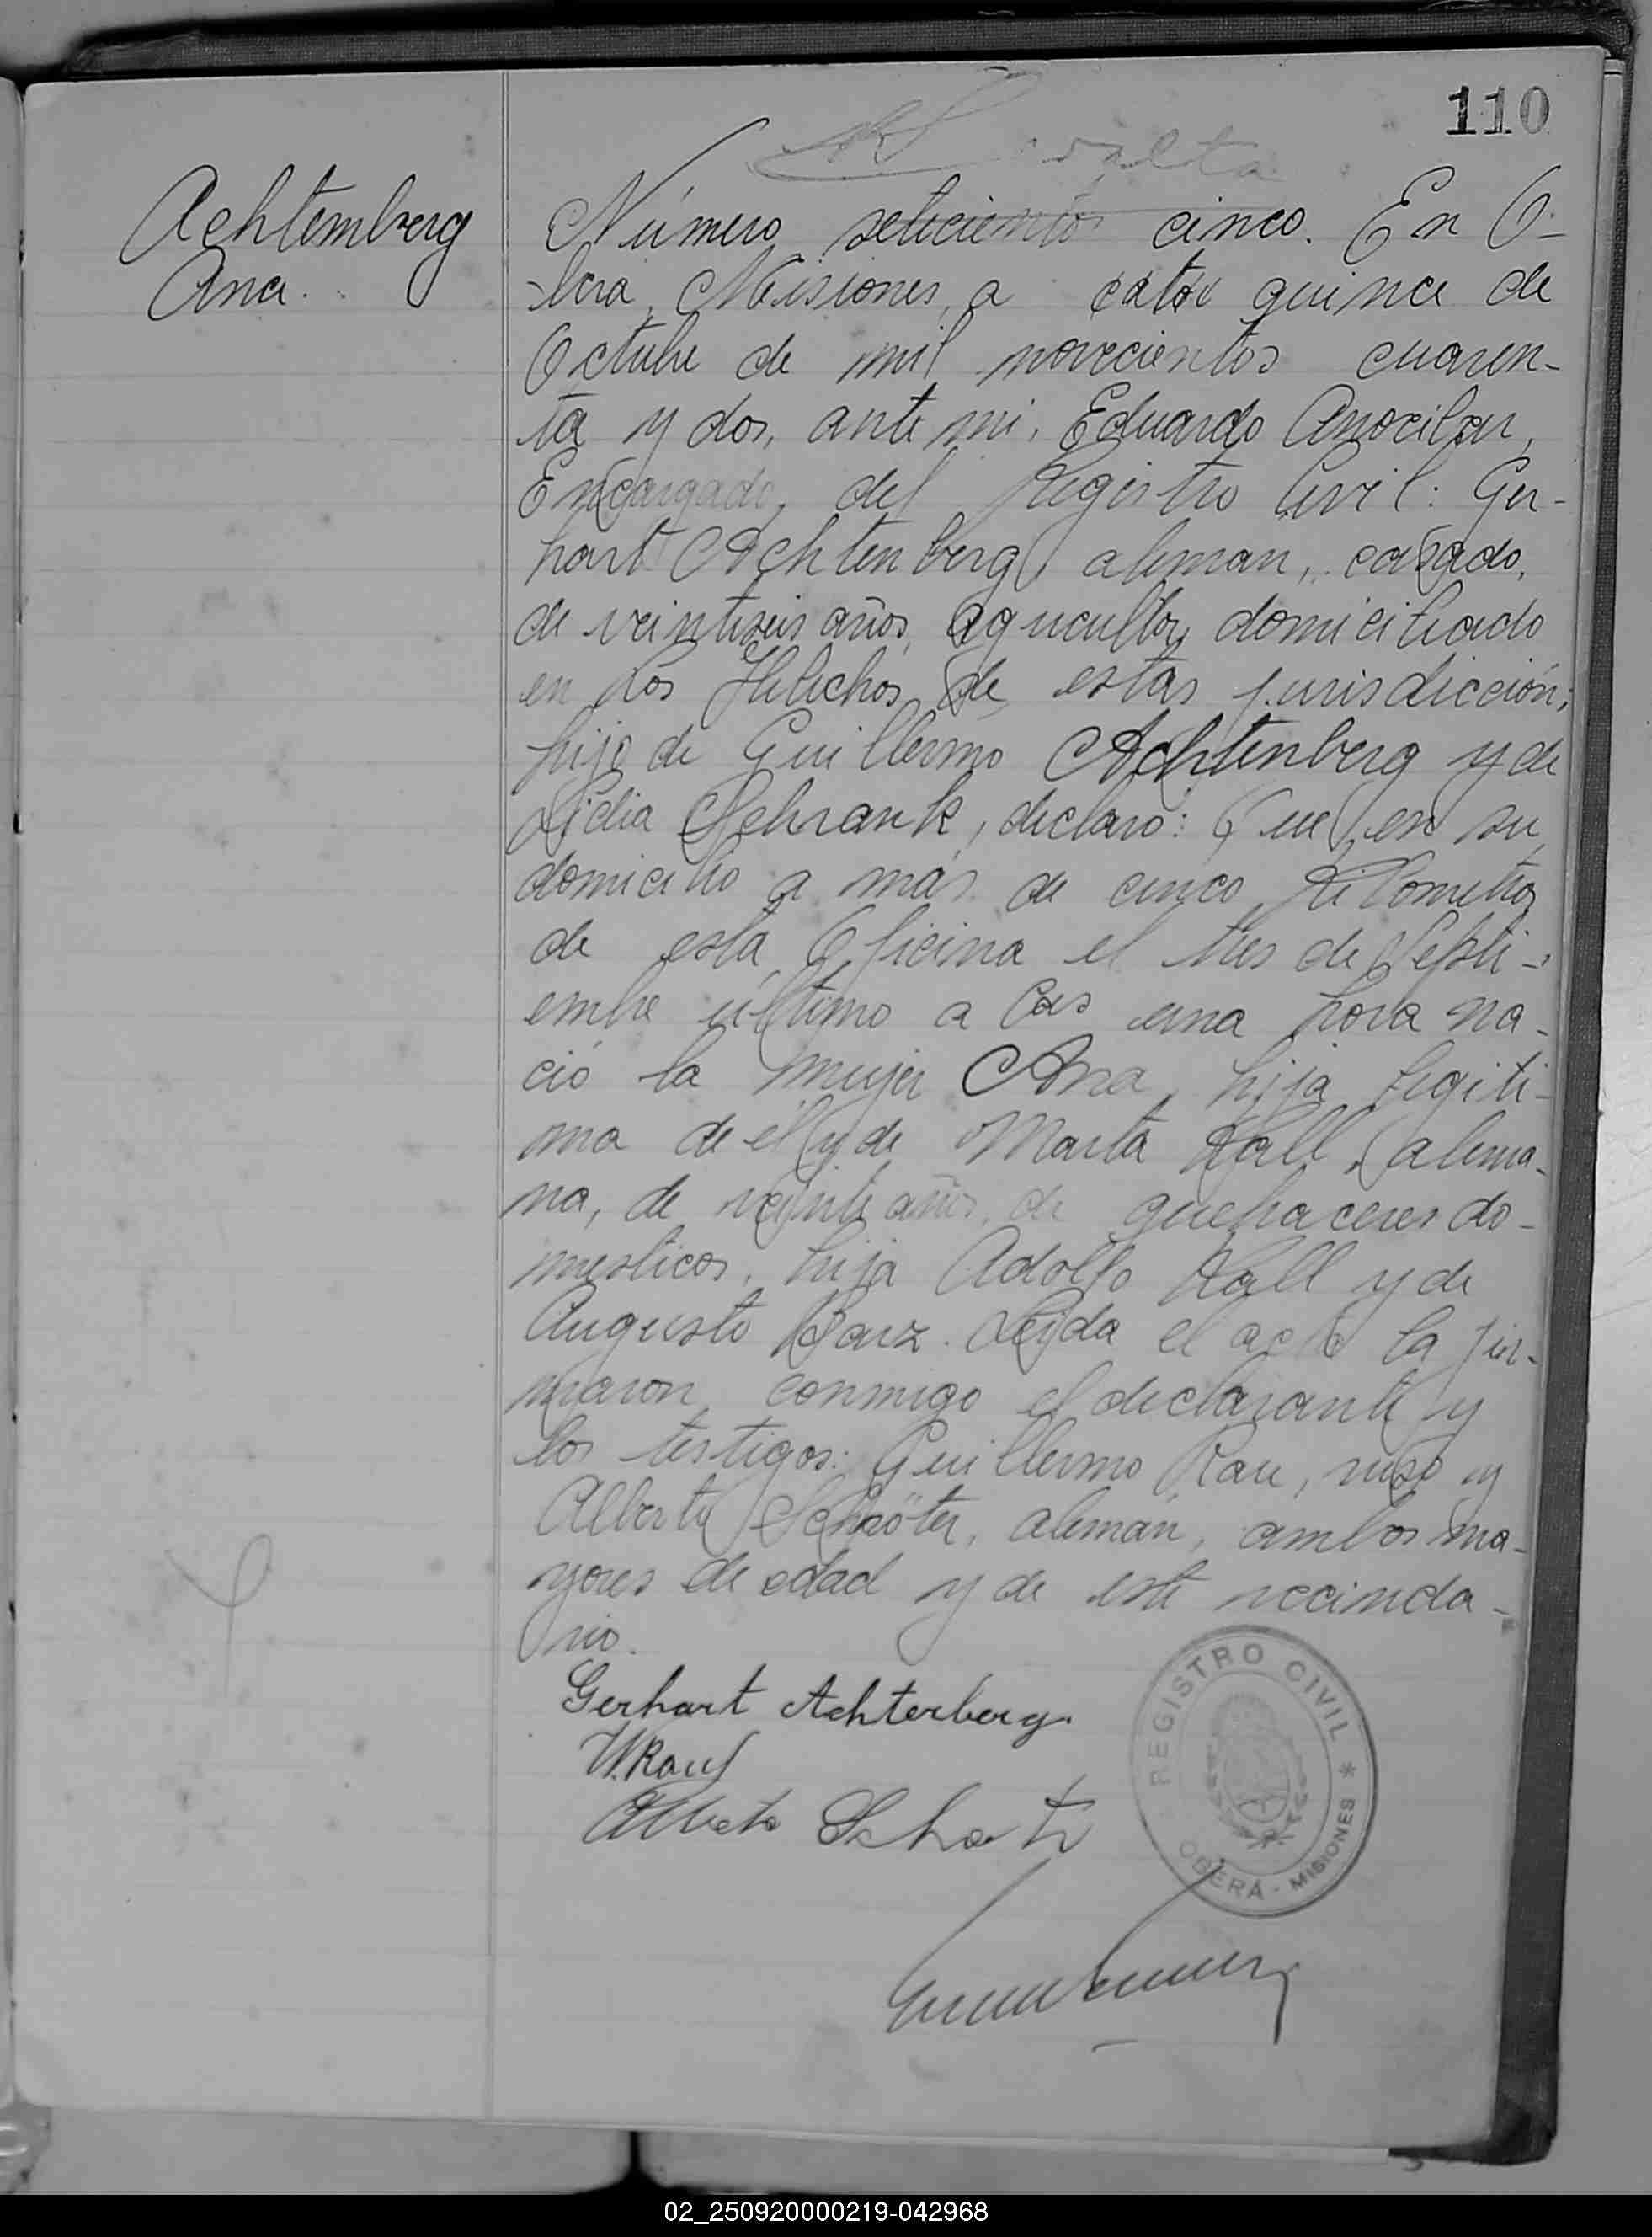 110
Achtemberg
Ana.
Número setecientos cinco. En O-
bera, Misiones, a quince de
Octubre de mil novecientos cuaren-
ta y dos, ante mi, Eduardo
Encargado, del Registro Civil: Ger-
hart Achtenberg, aleman, casado,
de veintiseis años, agricultor, domiciliado
en Los Helechos, de estas jurisdicción;
hijo de Guillermo Achtenberg y de
Lidia Schrank, declaro: Que en su
domicilio a más de cinco kilometros
de esta Oficina el tres de Septi-
embre último a las una hora na-
ció la mujer Ana, hija legiti-
ma de él y de Marta Kall, alema-
na, de veinte años, de quehaceres do-
mesticos, hija Adolfo Kall y de
Augusto Barz. Leida el acta la fir-
maron conmigo el declarante y
los testigos: Guillermo Rau, ruso y
Alberto Schröter, alemán, ambos ma-
yores de edad y de este vecinda-
rio.
Gerhart Achterberg.
W. Rau
Alberto
REGISTRO CIVIL *
OBERÁ - MISIONES
02_250920000219-042968